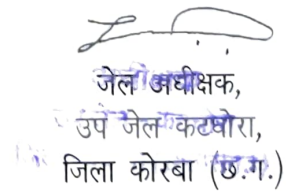 जेल अधीक्षक,
उप जेल कटघोरा,
जिला कोरबा (छ.ग.)